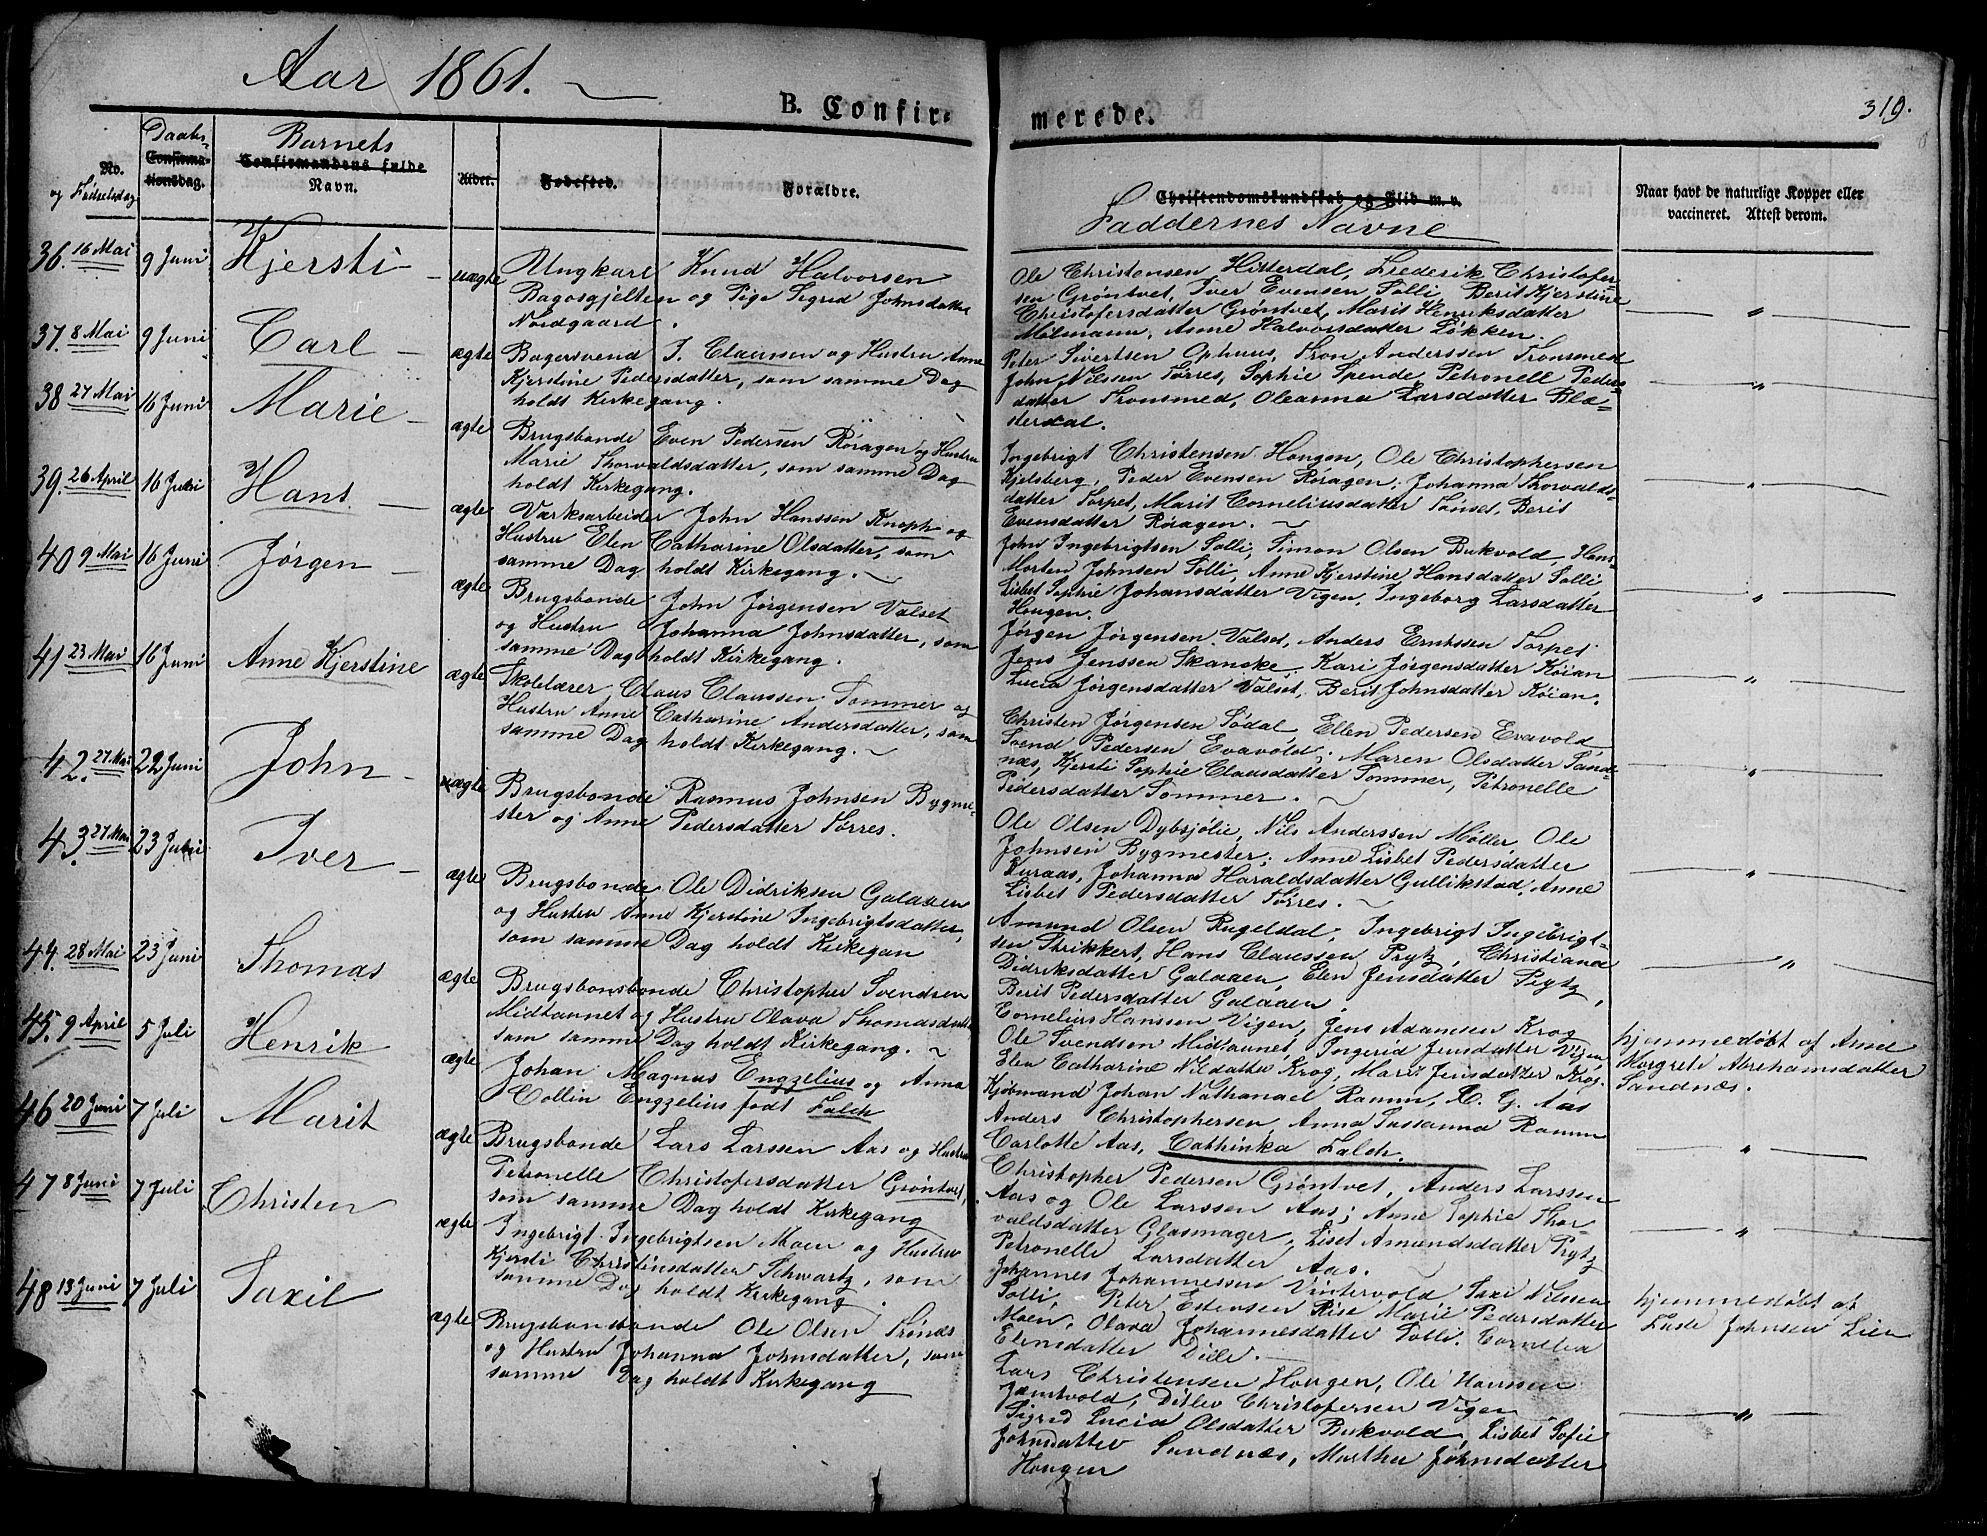 Aar 1861.
B. Confirmerede.
319.
No. og Fødselsdag
Daabs-
Confirmationsdag.
Barnets
Confirmandens fulde Navn.
Alder.
Fødested.
Forældre.
Christendomskundskab og Flid m. v.
Faddernes Navne
Naar havt de naturlige Kopper eller
vaccineret. Attest derom.
36. 16 Mai 9 Juni Kjersti uægte
Ungkarl Knud Halvorsen
Bagosgjelten og Pige Sigrid Johnsdatter
Nordgaard.
Ole Christensen Hitterdal, Frederik Christofer-
sen Grøntvet, Iver Evensen Solli, Berit Kjerstine
Christofersdatter Grøntvet, Marit Henriksdatter
Milmann, Anne Halvorsdatter Løkken.
37. 8 Mai 9 Juni Carl ægte
Bagersvend J. Claussen og Hustru Anne
Kjerstine Pedersdatter, som samme Dag
holdt Kirkegang.
Peter Sivertsen Ophuus, Tron Anderssen Tronsmed
John Nilssen Tørres, Sophie Spende, Petronell Peders-
datter Tronsmed, Oleanna Larsdatter Blæ-
sterdal.
38 27 Mai 16 Juni Marie ægte
Brugsbonde Even Pedersen Røragen og Hustru
Marie Thorvaldsdatter, som samme Dag
holdt Kirkegang.
Ingebrigt Christensen Hougen, Ole Christophersen
Kjelsberg, Peder Evensen Røragen, Johanna Thorvalds-
datter Torpet, Marit Corneliusdatter Tønset, Berit
Evensdatter Røragen.
39. 26 April 16 Juni Hans ægte
Værksarbeider John Hanssen Knoph og
Hustru Elen Catharine Olsdatter, som
samme Dag holdt Kirkegang.
John Ingebrigtsen Solli, Simon Olsen Bukvold, Hans
Morten Johnsen Solli, Anne Kjerstine Hansdatter Solli
Lisbet Sophie Johansdatter Vigen, Ingeborg Larsdatter
Hougen.
40 9 Mai 16 Juni Jørgen ægte
Brugsbonde John Jørgensen Valset
og Hustru Johanna Johnsdatter, som
samme Dag holdt Kirkegang.
Jørgen Jørgensen Valset, Anders Erntssen Torpet
Jens Jenssen Skancke, Kari Jørgensdatter Køian
Lucia Jørgensdatter Valset, Berit Johnsdatter Køian.
41 23 Mai 16 Juni Anne Kjerstine ægte
Skolelærer Claus Claussen Sommer og
Hustru Anne Catharine Andersdatter, som
samme Dag holdt Kirkegang.
Christen Jørgensen Sødal, Ellen Pedersen Evavold
Svend Pedersen Evavold, Maren Olsdatter Sand-
næs, Kjersti Sophie Clausdatter Sommer, Petronelle
Pedersdatter Sommer.
42. 27 Mai 22 Juni John uægte
Brugsbonde Rasmus Johnsen Bygme-
ster og Anne Pedersdatter Tørres.
Ole Olsen Dybsjølie, Nils Anderssen Møller, Ole
Johnsen Bygmester, Anne Lisbet Pedersdatter
Kuraas, Johanna Haraldsdatter Gullikstad, Anne
Lisbet Pedersdatter Tørres.
43. 27 Mai 23 Juni Iver ægte
Brugsbonde Ole Didriksen Galaaen
og Hustru Anne Kjerstine Ingebrigtsdatter,
som samme Dag holdt Kirkegan
Amund Olsen Rugeldal, Ingebrigt Ingebrigt-
sen Strikkert, Hans Claussen Prytz, Christiana
Didriksdatter Galaaen, Elen Jensdatter Prytz,
Berit Pedersdatter Galaaen.
44. 28 Mai 23 Juni Thomas ægte
Brugsbonsbonde Christopher Svendsen
Midtaunet og Hustru Olava Thomasdatter
som samme Dag holdt Kirkegang.
Cornelius Hanssen Vigen, Jens Adamsen Krog
Ole Svendsen Midtaunet, Ingerid Jensdatter Vigen
Elen Catharine Nilsdatter Krog, Marit Jensdatter Krog.
45. 9 April 5 Juli Henrik ægte
Johan Magnus Engzelius og Anna
Collin Engzelius født Falch
Kjøbmand Johan Nathanael Ramm, C. G. Aas
Anders Christophersen, Anna Sussanna Ramm
Carlotte Aas, Cathinka Falch.
hjemmedøbt af Anne
Margrete Abrehamsdatter
Sandnæs.
46 20 Juni 7 Juli Marit ægte
Brugsbonde Lars Larssen Aas og Hustru
Petronelle Christofersdatter Grøntvet,
som samme Dag holdt Kirkegang
Christopher Pedersen Grøntvet, Anders Larssen
Aas og Ole Larssen Aas; Anne Sophie Thor-
valdsdatter Glasmager, Liset Amundsdatter Prytz
Petronelle Larsdatter Aas.
47 8 Juni 7 Juli Christen ægte
Ingebrigt Ingebrigtsen Moen og Hustru
Kjersti Christinsdatter Schwartz, som
samme Dag holdt Kirkegang.
Johannes Johannessen Vintervold Taxi Nilssen
Solli, Peter Estensen Rise Marie Pedersdatter
Moen, Olava Johannesdatter Solli, Cornelia
Elensdatter Dille.
hjemmedøbt af
Lasse Johnsen Lien
48 13 Juni 7 Juli Taxil ægte
Brugsbonsbonde Ole Olsen Trønæs
og Hustru Johanna Johnsdatter, som
samme Dag holdt Kirkegang
Lars Christensen Hougen, Ole Hanssen
Jamtvold, Ditlev Christofersen Vigen
Sigrid Lucia Olsdatter Bukvold, Lisbet Sofie
Johnsdatter Sandnæs, Marthe Johnsdatter
Hougen